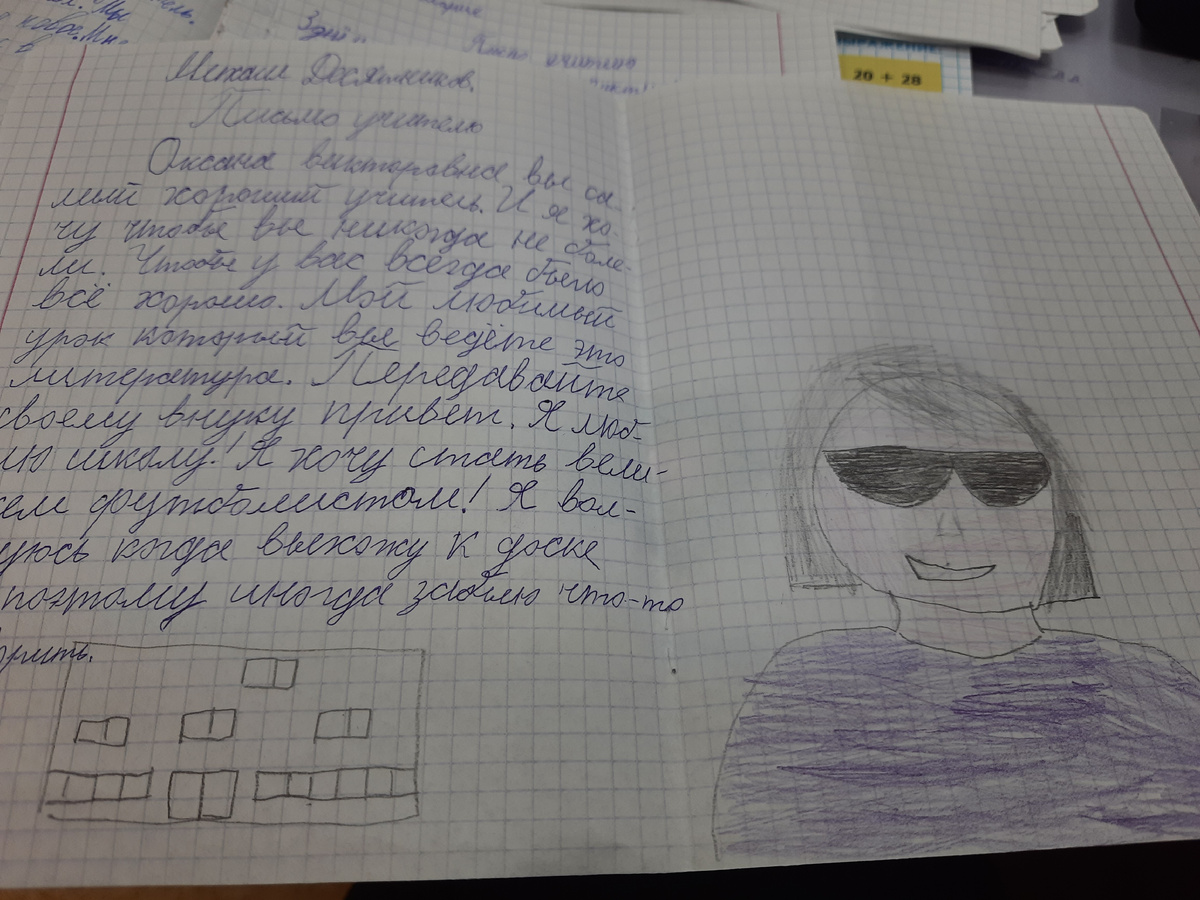 20 + 28
Письмо учителю
Оксана викторовна вы са-
мый хороший учитель. И я хо-
чу чтобы вы никогда не боле-
ли. Чтобы у вас всегда было
всё хорошо. Мой любимый
урок который вы ведёте это
литература. Передавайте
своему внуку привет. Я люб-
лю школу! Я хочу стать вели-
ким футболистом! Я вол-
нуюсь когда выхожу к доске
поэтому иногда забыю что-то